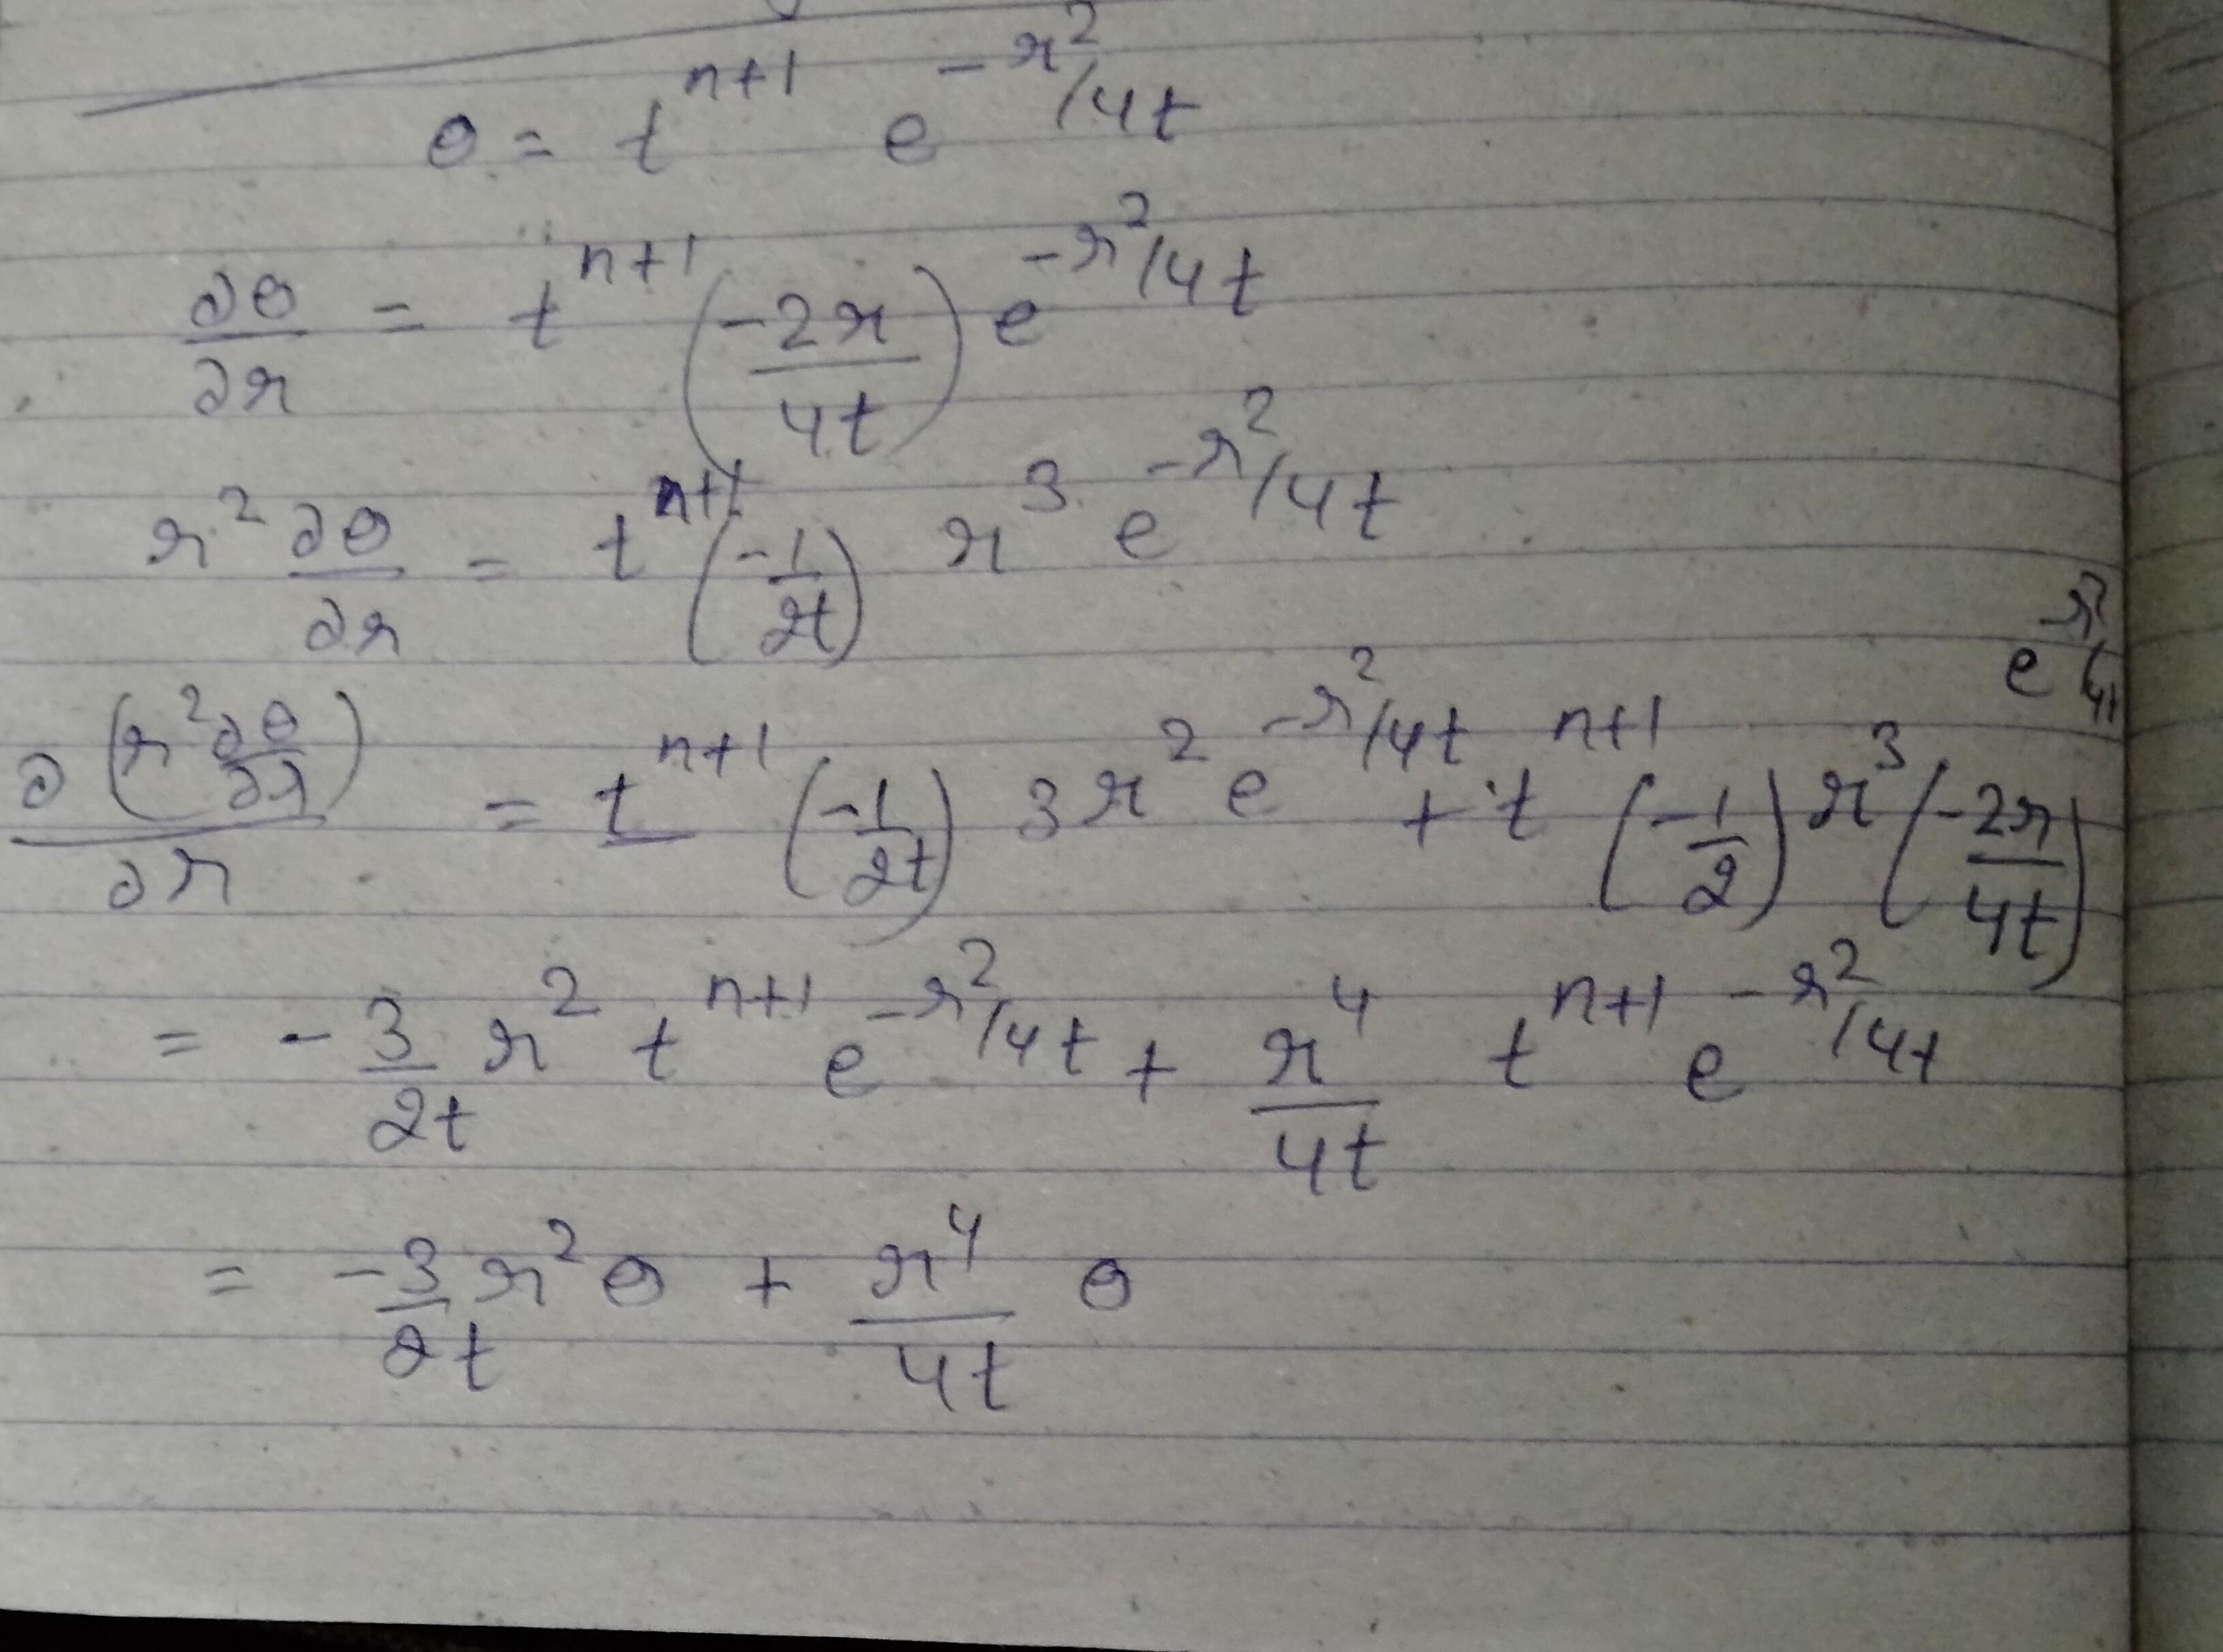 θ = t^{n+1} e^{-r²/4t}
∂θ/∂r = t^{n+1} (-2r/4t) e^{-r²/4t}
r² ∂θ/∂r = t^{n+1} (-1/2t) r³ e^{-r²/4t}
∂(r² ∂θ/∂r)/∂r = t^{n+1} (-1/2t) 3r² e^{-r²/4t} + t^{n+1} (-1/2) r³ (-2r/4t) e^{-r²/4t}
= -3/2t r² t^{n+1} e^{-r²/4t} + r⁴/4t t^{n+1} e^{-r²/4t}
= -3/2t r² θ + r⁴/4t θ